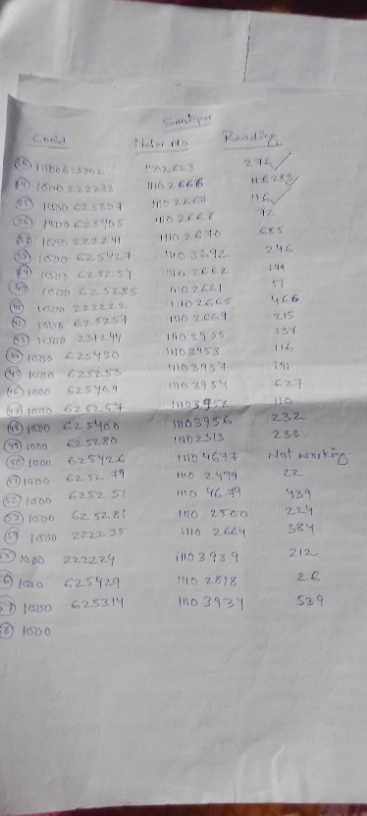 Conid Meter No Reading
1000625302 11102663 276
1000 222232 11102666 283
1000 625307 11102667 116
1000 625405 11102668 92
1000 222241 11102670 685
1000 625427 11103692 246
1000 625259 11102662 199
1000 625285 11102661 51
1000 222222 11102665 466
1000 625257 11102669 215
1000 231244 11103955 137
1000 625430 11103953 116
1000 625253 11103957 191
1000 625409 11103954 627
1000 625257 11103952 110
1000 625400 11103956 232
1000 625280 11102313 233
(50) 1000 625426 1110 4677 Not working
1000 625279 1110 2499 22
(52) 1000 625251 1110 4679 439
(53) 1000 625281 1110 2500 224
1000 222235 1110 2664 384
1000 222224 11103939 212
1000 625429 1110 2818 26
1000 625314 1110 3937 539
1000